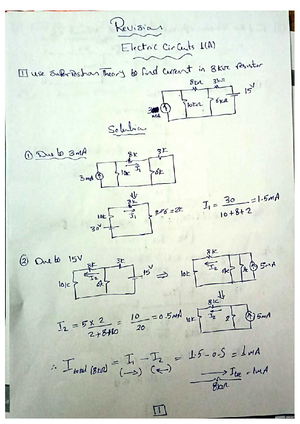 Revision
Electric Circuits 1(A)
1 use superposition Theory to find current in 8kΩ resistor
8kΩ 3kΩ
3mA 10kΩ 6kΩ 15V
Solution
① Due to 3mA
8k 3k
3mA 10k I₁ 6k
8k
10k I₁ 3//6=2k
30V
I₁ = 30 / 10+8+2 = 1.5mA
② Due to 15V
8k 3k
10k I₂ 6k 15V ⇒
8k
10k I₂ 5mA
8k
10k I₂ 2 5mA
I₂ = 5 × 2 / 2+8+10 = 10 / 20 = 0.5mA
∴ I total (8kΩ) = I₁ - I₂ = 1.5 - 0.5 = 1mA
(→) (←)
8kΩ = 1mA
1